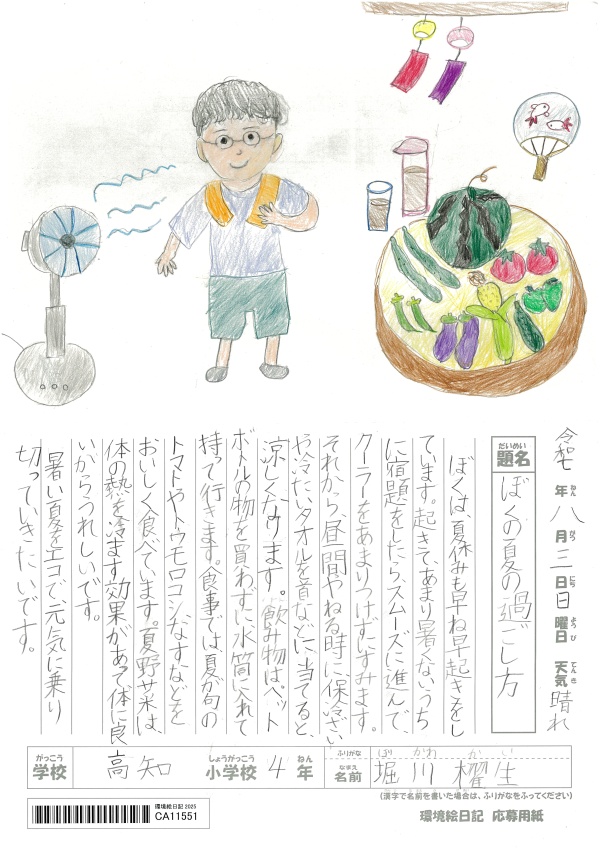 令和七年八月三日日曜日 天気晴れ
ねん がつ にち ようび てんき
だいめい
題名 ぼくの夏の過ごし方
ぼくは、夏休みも早ね早起きをし
ています。起きて、あまり暑くないうち
に宿題をしたら、スムーズに進んで、
クーラーをあまりつけずにすみます。
それから、昼間やねる時に、保冷ざい
や冷たいタオルを首などに当てると、
涼しくなります。飲み物は、ペット
ボトルの物を買わずに水筒に入れて
持って行きます。食事では、夏が旬の
トマトやトウモロコシ、なすなどを
おいしく食べています。夏野菜は、
体の熱を冷ます効果があって体に良
いからうれしいです。
暑い夏をエコで、元気に乗り
切っていきたいです。
がっこう しょうがっこう ねん ふりがな ほり かわ かい
学校 高知 小学校 4年 なまえ 名前 堀川 櫂生
(漢字で名前を書いた場合は、ふりがなをふってください)
環境絵日記 2025
CA11551
環境絵日記 応募用紙